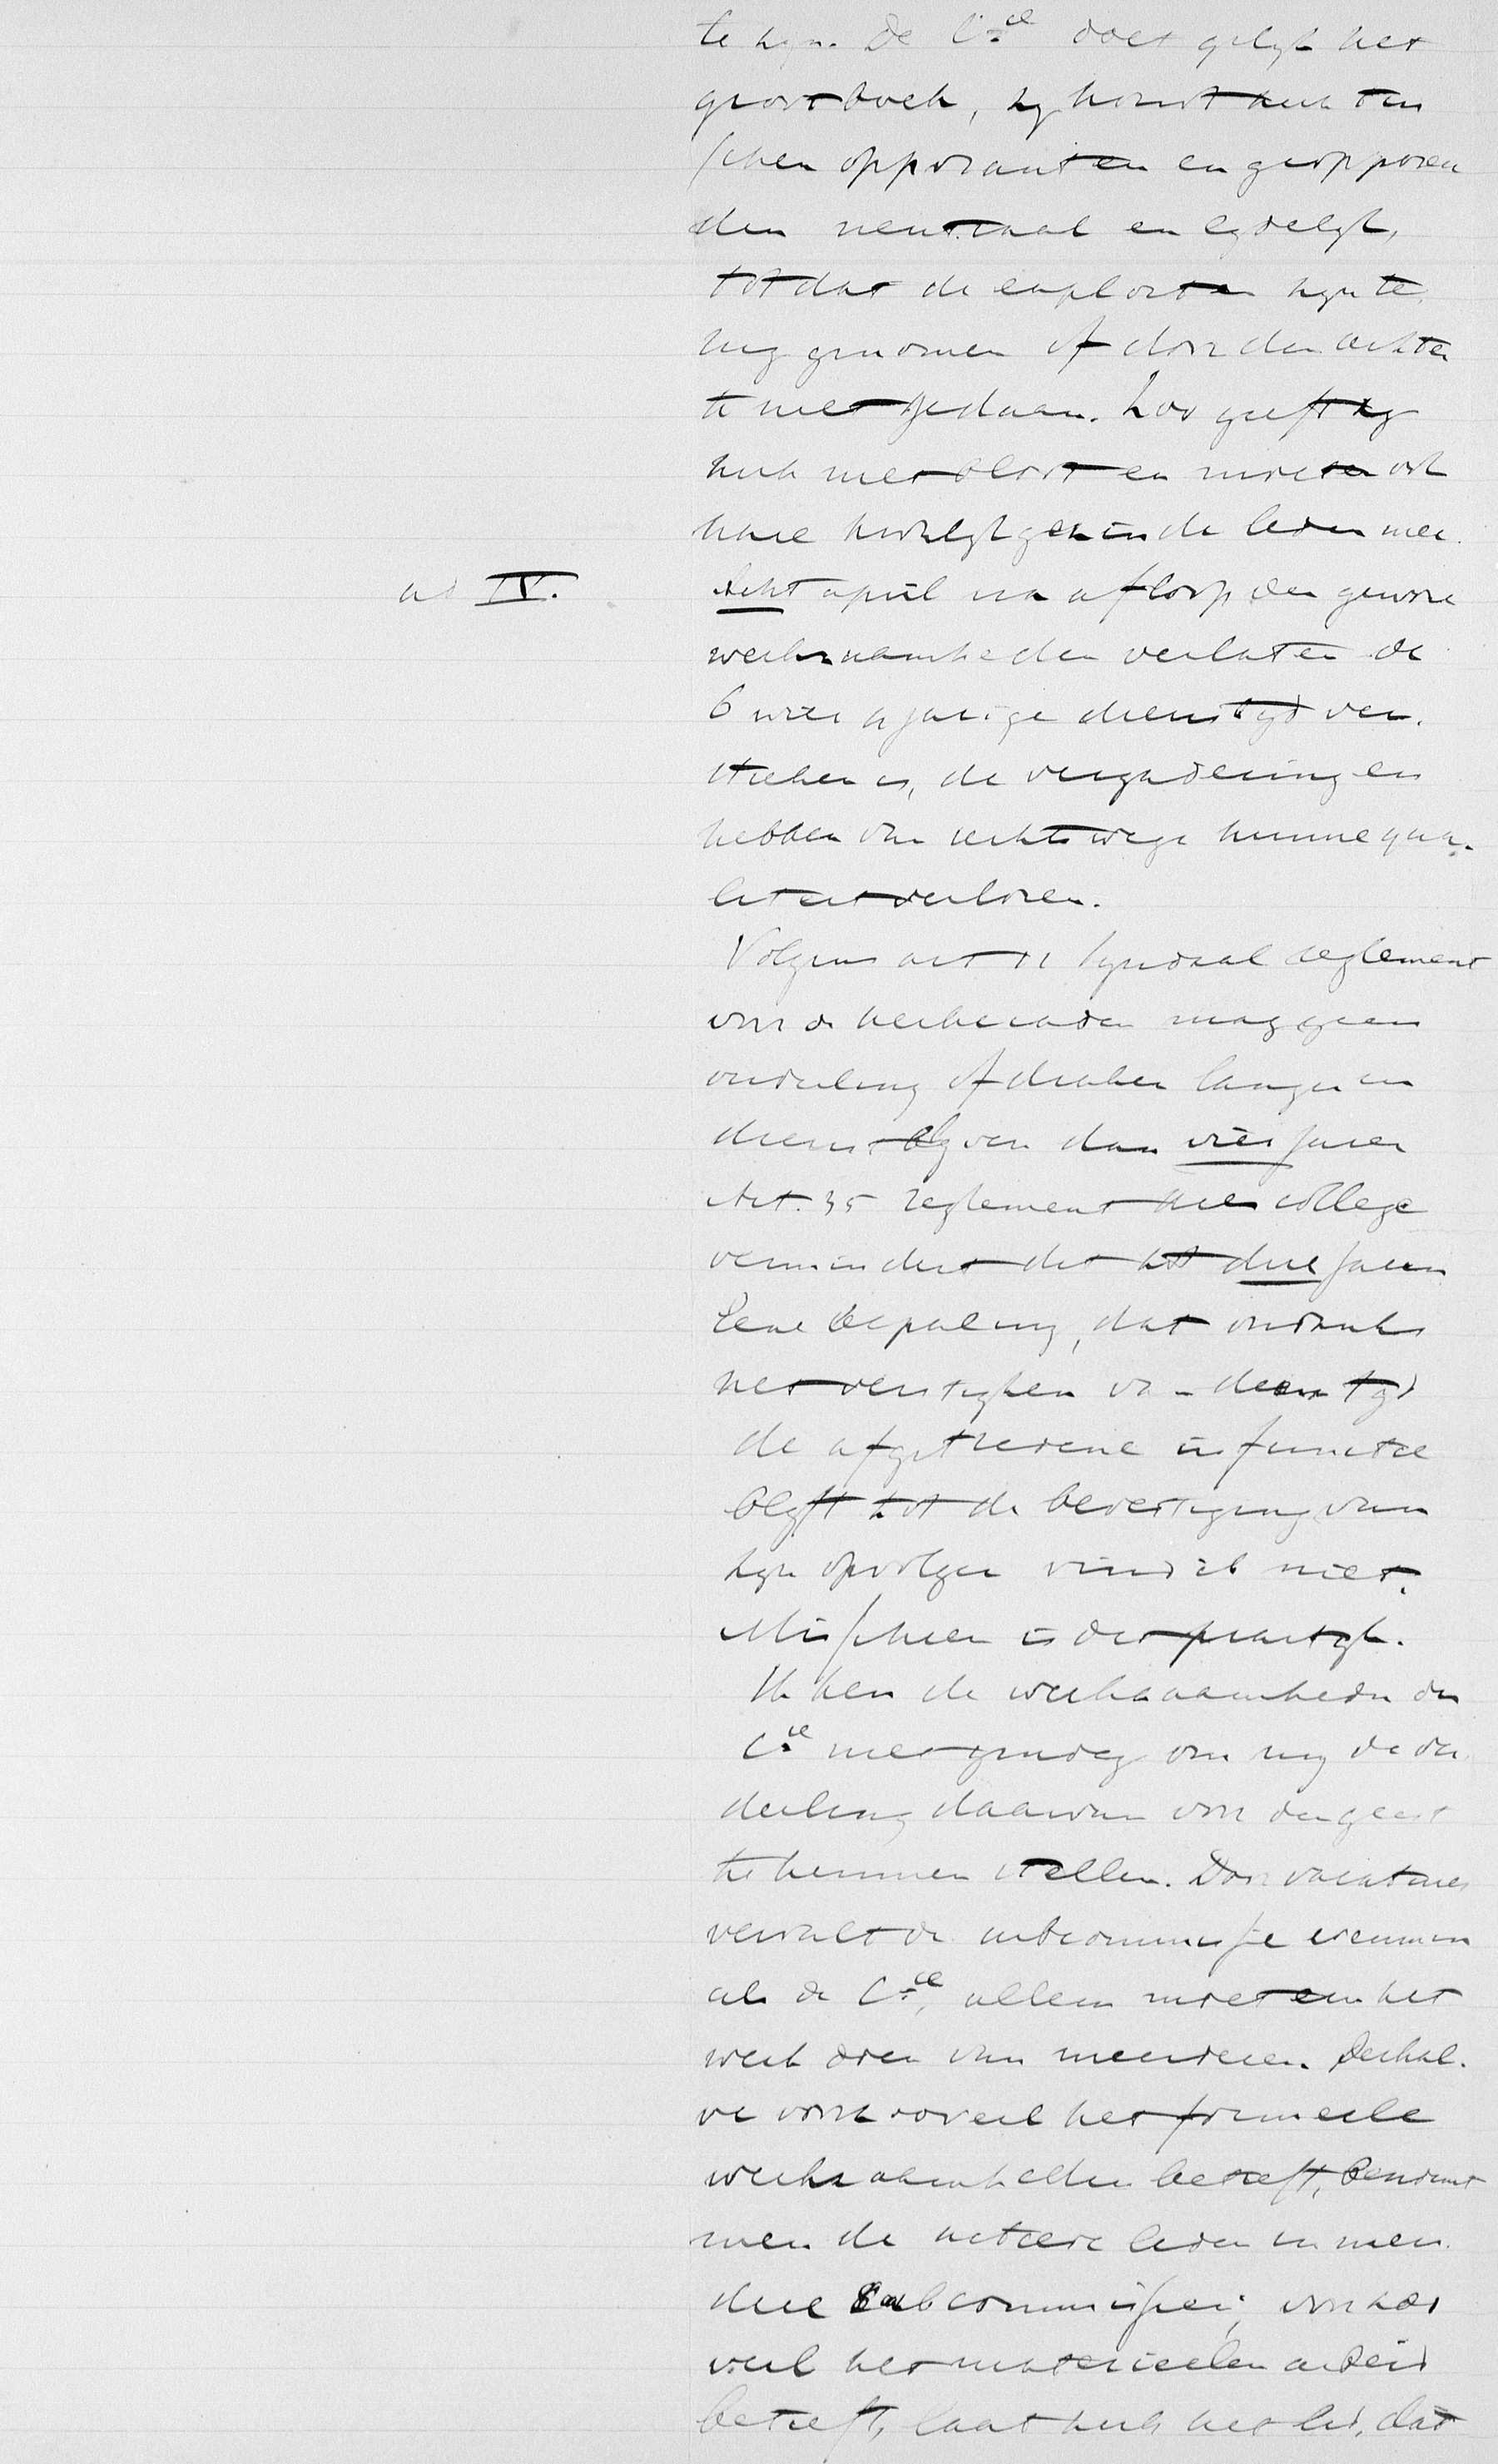 te zyn. De C.ie doet gelyk het
grootboek, zy houdt zich tus
schen opposanten en geopposeer
den neutraal en lydelyk,
tot dat de exploiten zyn te
rug genomen of door den rechter
te niet gedaan. Zoo geeft zy
zich niet bloot en moeten ook
hare kerkelyk gezinde leden mee.
ad IV.
Acht april na afloop der gewone
werkzaamheden verlaten de
6 wier 4 jarige diensttyd ver.
streken is, de vergadering en
hebben van rechtswege hunne qua.
liteit verloren.
Volgens art 11 synodaal reglement
voor de kerkeraden mag geen
ouderling of diaken langer in
dienst blyven dan vier jaren
Art. 35 reglement kies college
vermindert dit tot drie jaren
Eene bepaling, dat ondanks
het verstryken van dezen tyd
de afgetredene in functie
blyft tot de bevestiging van
zyn opvolger vind ik niet.
Misschien is dit praktyk.
Ik ken de werkzaamheden der
C.ie niet genoeg om my de ver
deeling daarvan voor den geest
te kunnen stellen. Door vacatures
vervalt de subcommissie evenmin
als de C.ie, alleen moet een het
werk doen van meerderen. Derhal.
ve voor zooveel het formeele
werkzaamheden betreft, benoemt
men de actieve leden in meer.
dere Subcommissien; voor zoo
veel het materieelen arbeid
betreft, laat zich het lid, dat